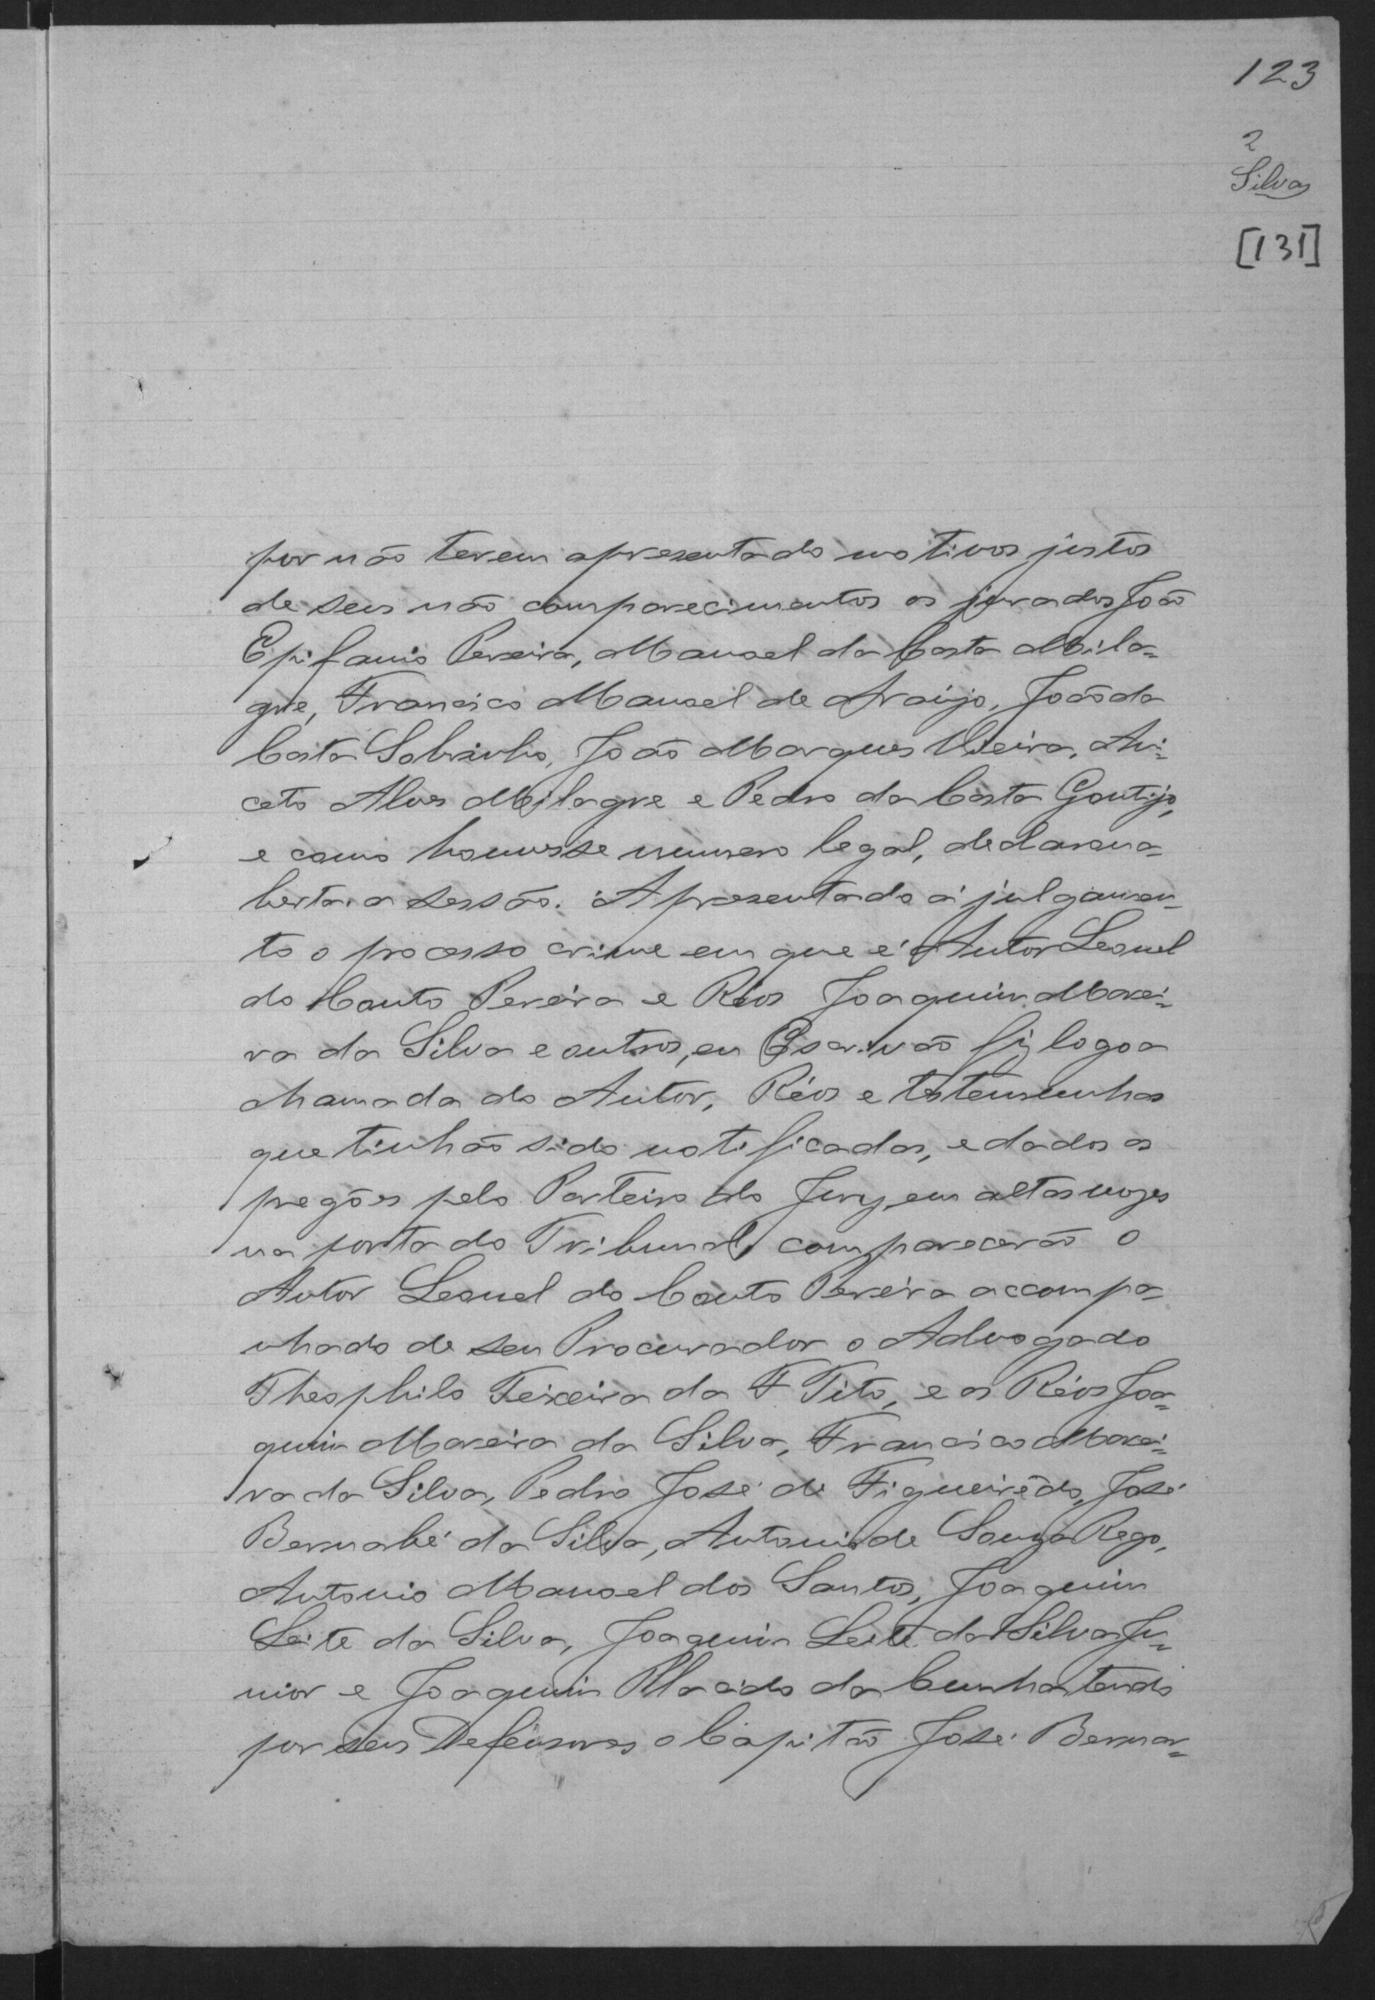 123
2
Silva
[131]
por não terem apresentado motivos justos
de seus não comparecimentos os jurados João
Epifanio Pereira, Manoel da Costa Mila=
gre, Francisco Manoel de Araújo, João da
Costa Sobrinho, João Marques Vieira, Ani=
ceto Alves Milagre e Pedro da Costa Gontijo,
e como houvesse numero legal, declarou a=
berta a sessão. Apresentado á julgamen=
to o processo crime em que é Autor Leonel
do Couto Pereira e Réos Joaquim Morei=
ra da Silva e outros, eu Escrivão fiz logo a
chamada do Autor, Réos e testemunhas
que tinhão sido notificadas, e dados os
pregões pelo Porteiro do Jury, em altas vozes
na porta do Tribunal, comparecerão o
Autor Leonel do Couto Pereira accompa=
nhado de seu Procurador o Advogado
Theophilo Teixeira da F Tito, e os Réos Joa=
quim Moreira da Silva, Francisco Morei=
ra da Silva, Pedro José de Figueirêdo, José
Bernabé da Silva, Antonio de Souza Rego,
Antonio Manoel dos Santos, Joaquim
Leite da Silva, Joaquim Leite da Silva Ju=
nior e Joaquim Placido da Cunha tendo
por seus Defensores o Capitão José Bernar=